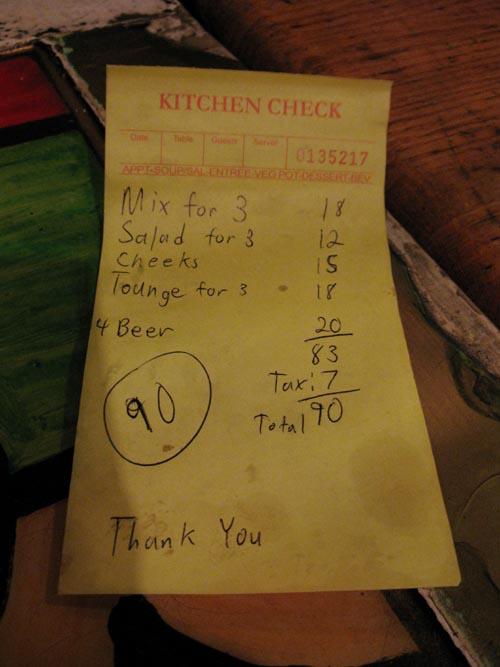 KITCHEN CHECK
Date Table Guests Server 0135217
APPT-SOUP/SAL-ENTREE-VEG POT-DESSERT-BEV
Mix for 3 18
Salad for 3 12
Cheeks 15
Tounge for 3 18
4 Beer 20
83
Tax: 7
90 Total 90
Thank You